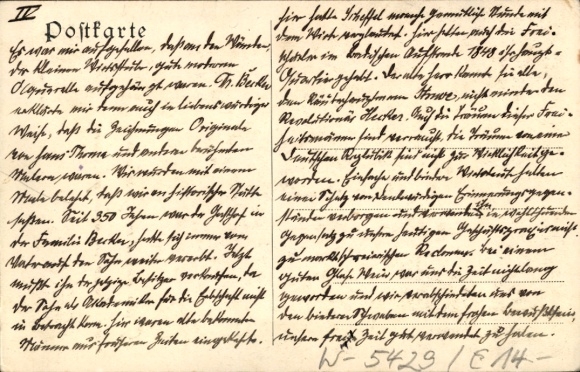 IV
Postkarte
Es war mir aufgefallen, daß an den Wänden,
der kleinen Wirtsstube, gute moderne
Aquarelle aufgehängt waren. Fr. Becker
erklärte mir denn auch in liebenswürdiger
Weise, daß die Zeichnungen Originale
von Hans Thoma und anderen berühmten
Malern waren. Wir wurden mit einem
Male belehrt, daß wir an historischer Stätte
saßen. Seit 350 Jahren war der Gasthof in
der Familie Becker, hatte sich immer vom
Vater auf den Sohn weiter vererbt. Jetzt
müßte ihn der jetzige Besitzer verkaufen, da
der Sohn als Akademiker für die Erbschaft nicht
in Betracht kam. Hier waren alte bekannte
Männer aus früheren Zeiten eingekehrt.
hier hatte Scheffel manche gemütliche Stunde mit
dem Wirte verplaudert. Hier hatten auch die Frei-
schärler im badischen Aufstande 1848 ihr Haupt-
Quartier gehabt. Der alte Herr kannte sie alle,
den Struwe, nicht minder den
Revolutionär Hecker. Auch die Träume dieser Frei-
heitsmänner sind verrauscht, die Träume von einer
Deutschen Republik sind nicht zur Wirklichkeit ge-
worden. Einfache und biedere Wirtsleute halten
einen Schatz von denkwürdigen Erinnerungsgegen-
ständen verborgen und in wohltuendem
Gegensatz zu unserer heutigen
zu marktschreierischen Reklame. Bei einem
guten Glas Wein, war uns die Zeit nicht lang
geworden und wir verabschiedeten uns von
den biederen Schwaben mit dem frohen Bewußtsein,
unsere freie Zeit gut verwendet zu haben.
W-5429/E 14.-